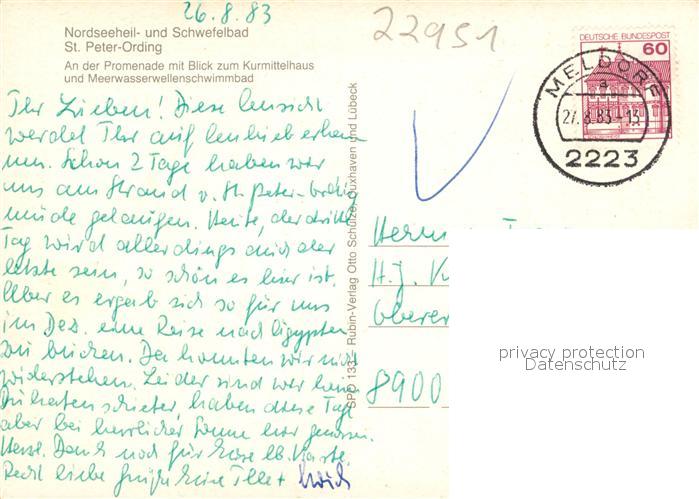 26.8.83
Nordseeheil- und Schwefelbad
St. Peter-Ording
An der Promenade mit Blick zum Kurmittelhaus
und Meerwasserwellenschwimmbad
22951
DEUTSCHE BUNDESPOST
60
MELDORF
a
27.8.83-13
2223
Ihr Lieben! Diese Ansicht
werdet Ihr auf Anhieb erken
nen. Schon 2 Tage haben wir
uns am Strand v. St. Peter-Ording
müde gelaufen. Heute, der dritte
Tag wird allerdings auch der
letzte sein, so schön es hier ist.
Aber es ergab sich so für uns
im Dez. eine Reise nach Ägypten
zu buchen. Da konnten wir nicht
widerstehen. Leider sind wir
haben diese Tage
aber bei herrlicher Sonne hier genossen.
Herzl. Dank noch für Karte
Recht liebe Grüße Eure +
SPO 1331 Rubin-Verlag Otto Schulze, Cuxhaven und Lübeck
H.J. K
Oberer
8900
privacy protection
Datenschutz